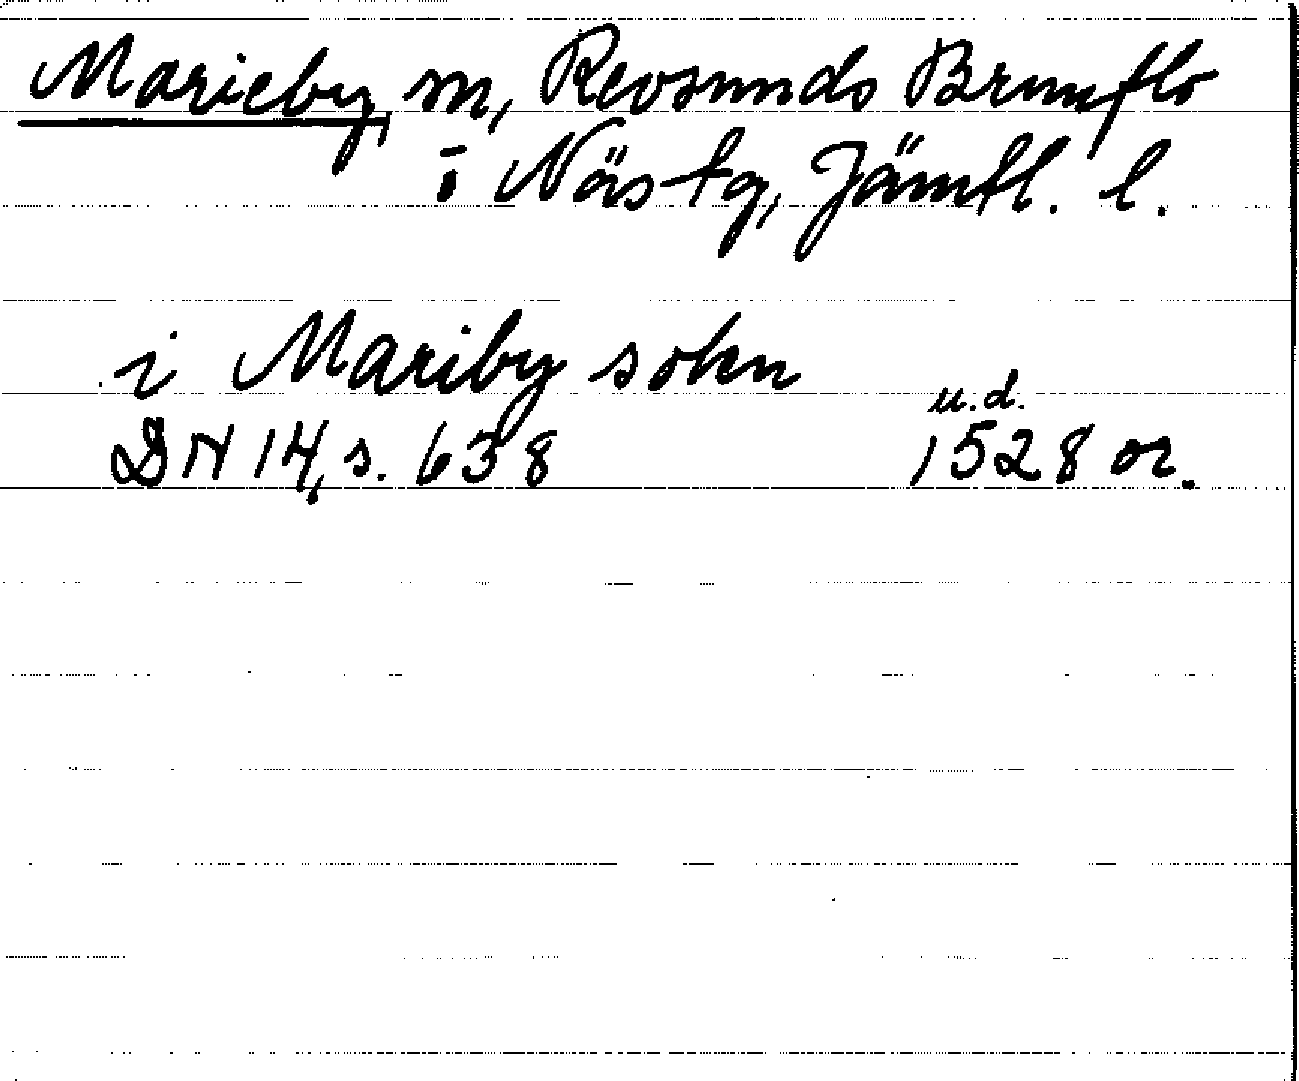 Marieby, sn, Revsunds Brunflo
i Näs tg, Jämtl. l.
i Mariby sokn
u.d.
DN 14, s. 638 1528 or.